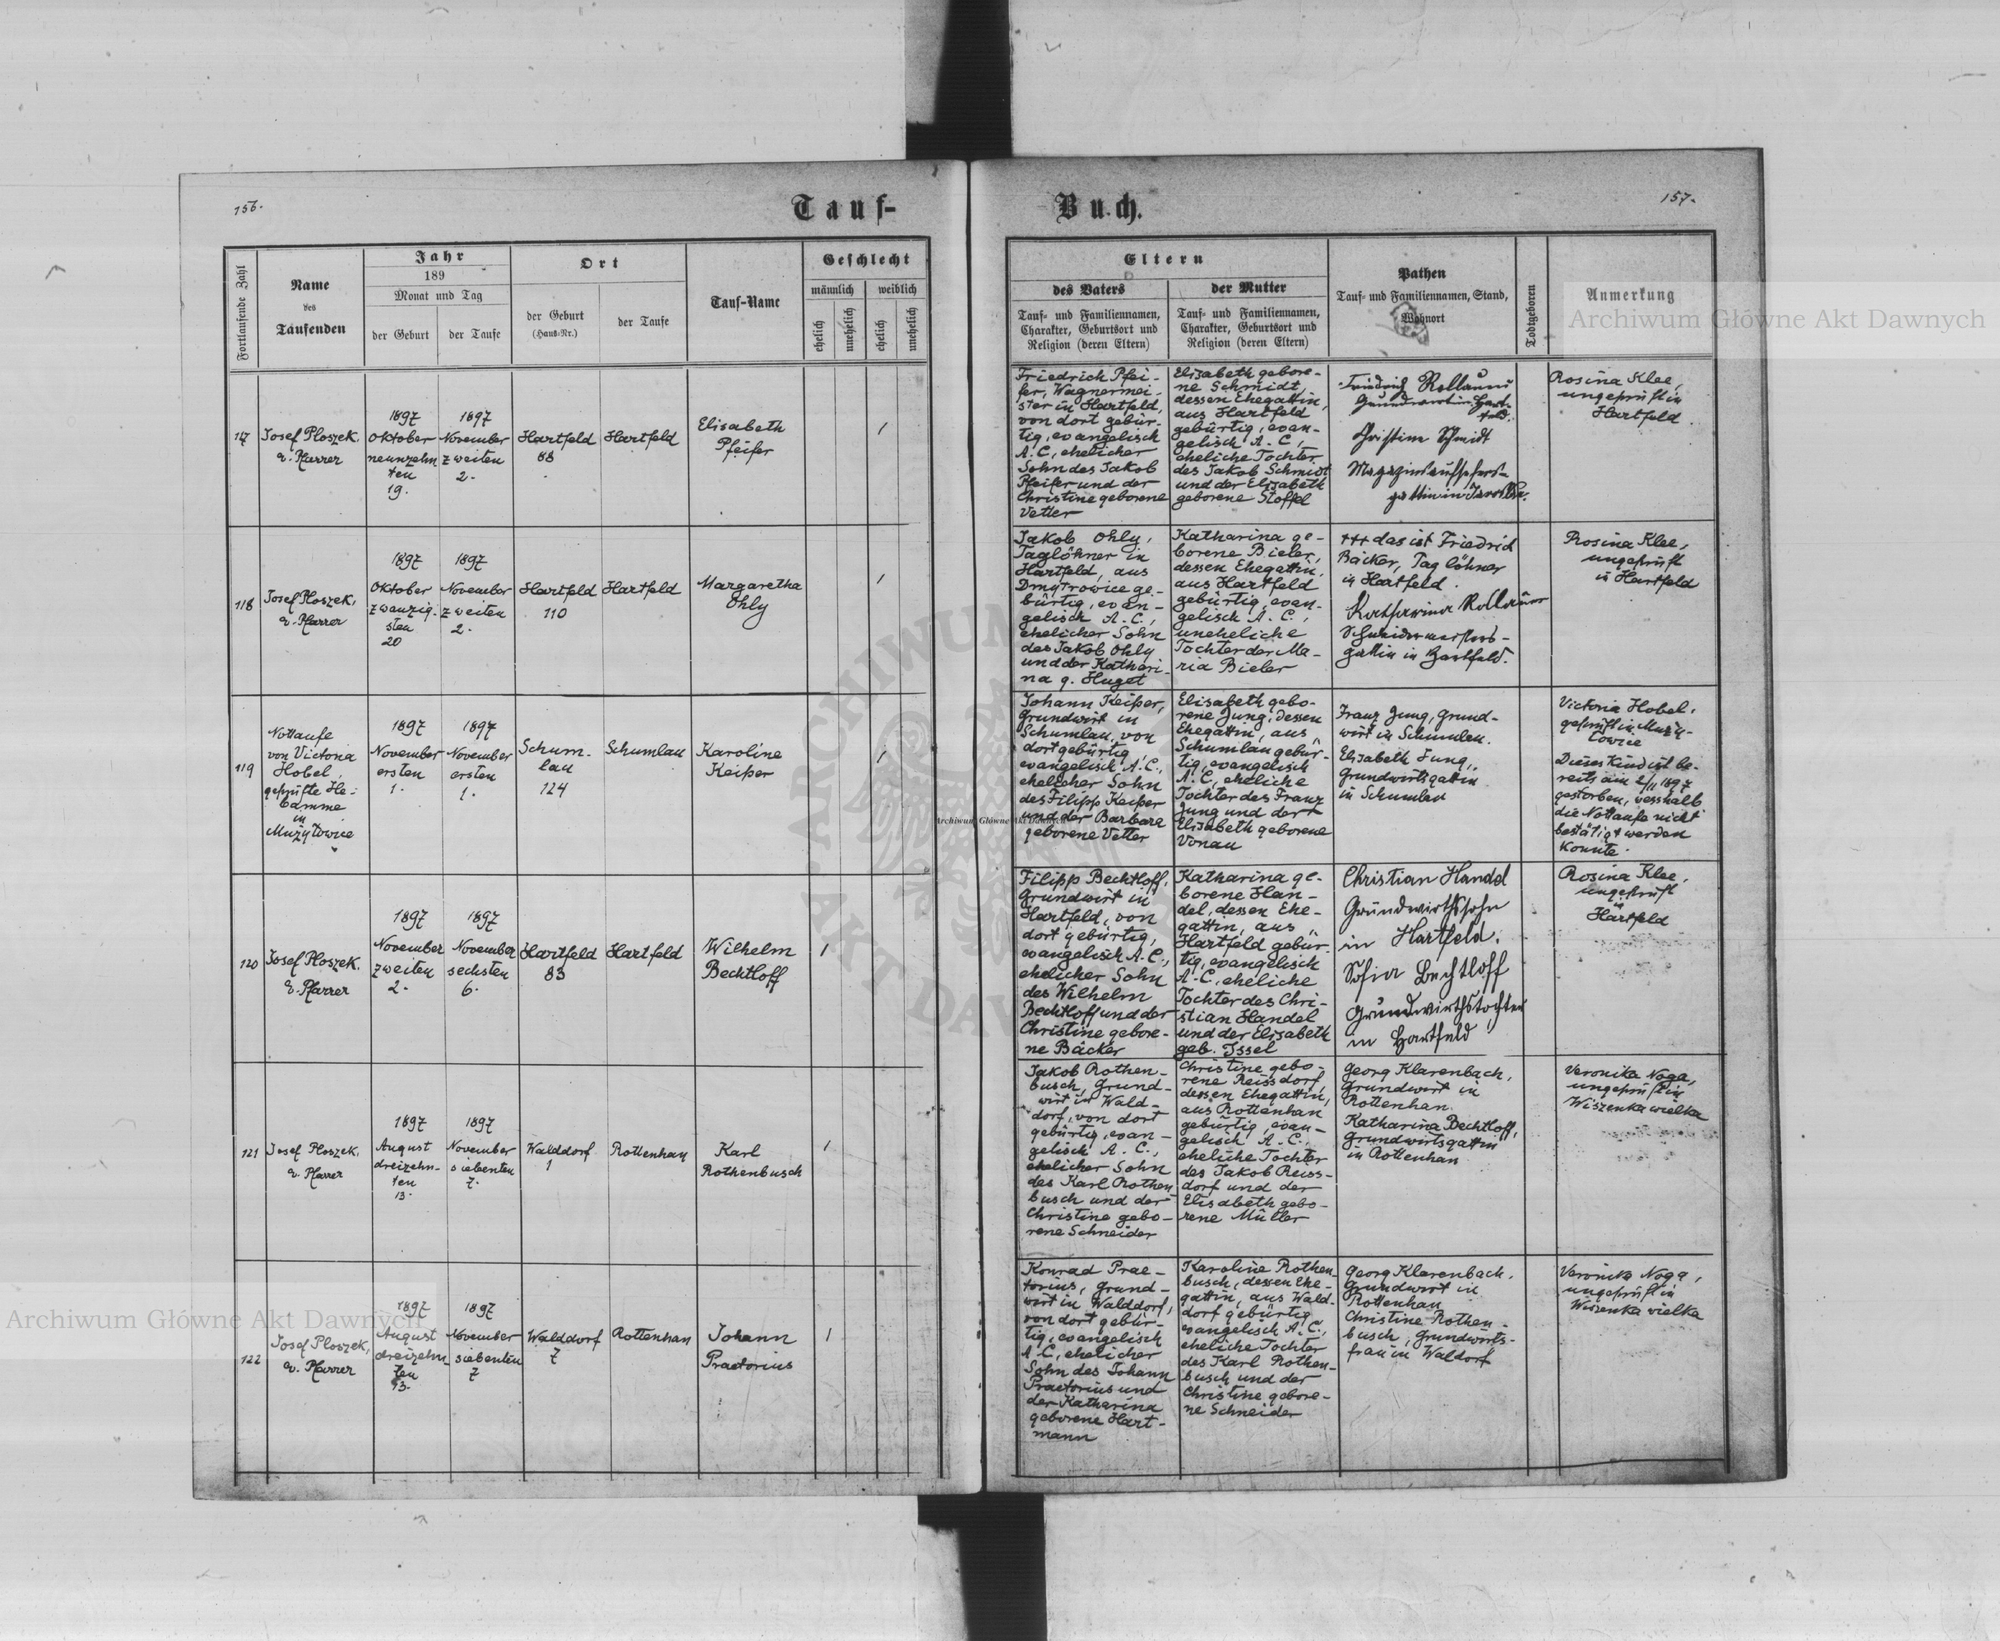 156.
Tauf-
Buch.
157.
Fortlaufende Zahl
Name
des
Taufenden
Jahr
189
Monat und Tag
der Geburt
der Taufe
Ort
der Geburt
(Haus-Nr.)
der Taufe
Tauf-Name
Geschlecht
männlich
weiblich
ehelich
unehelich
ehelich
unehelich
Eltern
des Vaters
Tauf- und Familiennamen,
Charakter, Geburtsort und
Religion (deren Eltern)
der Mutter
Tauf- und Familiennamen,
Charakter, Geburtsort und
Religion (deren Eltern)
Pathen
Tauf- und Familiennamen, Stand,
Wohnort
Todtgeboren
Anmerkung
Archiwum Główne Akt Dawnych
117
Josef Ploszek,
ev. Pfarrer
1897
Oktober
neunzehn
ten
19.
1897
November
zweiten
2.
Hartfeld
88
Hartfeld
Elisabeth
Pfeifer
1
Friedrich Pfei-
fer, Wagnermei-
ster in Hartfeld,
von dort gebür-
tig, evangelisch
A.C., ehelicher
Sohn des Jakob
Pfeifer und der
Christine geborene
Vetter
Elisabeth gebore-
ne Schmidt,
dessen Ehegattin,
aus Hartfeld
gebürtig, evan-
gelisch A.C.,
eheliche Tochter
des Jakob Schmidt
und der Elisabeth
geborene Stoffel
Friedrich Rollauer
Grundwirt in Hart-
feld.
Christine Schmidt
Magazinsaufsehers-
gattin in
Rosina Klee,
ungeprüft in
Hartfeld
118
Josef Ploszek,
ev. Pfarrer
1897
Oktober
zwanzig-
sten
20
1897
November
zweiten
2.
Hartfeld
110
Hartfeld
Margaretha
Ohly
1
Jakob Ohly,
Taglöhner in
Hartfeld, aus
Dmytrowice ge-
bürtig, evan-
gelisch A.C.,
ehelicher Sohn
des Jakob Ohly
und der Kathari-
na g. Huget
Katharina ge-
borene Bieler,
dessen Ehegattin,
aus Hartfeld
gebürtig, evan-
gelisch A.C.,
uneheliche
Tochter der Ma-
ria Bieler
+++ das ist Friedrich
Bäcker, Taglöhner
in Hartfeld.
Katharina Rollauer
Schneidermeisters-
gattin in Hartfeld.
Rosina Klee,
ungeprüft
in Hartfeld
119
Nottaufe
von Victoria
Hobel,
geprüfte He-
bamme
in
Mużyłowice
1897
November
ersten
1.
1897
November
ersten
1.
Schum-
lau
124
Schumlau
Karoline
Keiper
1
Johann Keiper,
Grundwirt in
Schumlau, von
dort gebürtig,
evangelisch A.C.,
ehelicher Sohn
des Filipp Keiper
und der Barbara
geborene Vetter
Elisabeth gebo-
rene Jung, dessen
Ehegattin, aus
Schumlau gebür-
tig, evangelisch
A.C., eheliche
Tochter des Franz
Jung und der
Elisabeth geborene
Vonau
Franz Jung, Grund-
wirt in Schumlau.
Elisabeth Jung,
Grundwirtsgattin
in Schumlau
Victoria Hobel,
geprüft in Muży-
lowice
Dieses Kind ist be-
reits am 2/11 1897
gestorben, wesshalb
die Nottaufe nicht
bestätigt werden
konnte.
120
Josef Ploszek,
ev. Pfarrer
1897
November
zweiten
2.
1897
November
sechsten
6.
Hartfeld
83
Hartfeld
Wilhelm
Bechtloff
1
Filipp Bechtloff,
Grundwirt in
Hartfeld, von
dort gebürtig,
evangelisch A.C.,
ehelicher Sohn
des Wilhelm
Bechtloff und der
Christine gebore-
ne Bäcker
Katharina ge-
borene Han-
del, dessen Ehe-
gattin, aus
Hartfeld gebür-
tig, evangelisch
A.C., eheliche
Tochter des Chri-
stian Handel
und der Elisabeth
geb. Issel
Christian Handel
Grundwirthssohn
in Hartfeld.
Sofia Bechtloff
Grundwirthstochter
in Hartfeld
Rosina Klee,
ungeprüft
in
Hartfeld
121
Josef Ploszek,
ev. Pfarrer
1897
August
dreizehn-
ten
13.
1897
November
siebenten
7.
Walddorf
1
Rottenhan
Karl
Rothenbusch
1
Jakob Rothen-
busch, Grund-
wirt in Wald-
dorf, von dort
gebürtig, evan-
gelisch A.C.,
ehelicher Sohn
des Karl Rothen
busch und der
Christine gebo-
rene Schneider
Christine gebo-
rene Reissdorf,
dessen Ehegattin,
aus Rottenhan
gebürtig, evan-
gelisch A.C.,
eheliche Tochter
des Jakob Reiss-
dorf und der
Elisabeth gebo-
rene Müller
Georg Klarenbach,
Grundwirt in
Rottenhan.
Katharina Bechtloff,
Grundwirtsgattin
in Rottenhan
Veronika Noga,
ungeprüft in
Wiszenka wielka
122
Josef Ploszek,
ev. Pfarrer
1897
August
dreizehn-
ten
13.
1897
November
siebenten
7
Walddorf
7
Rottenhan
Johann
Praetorius
1
Konrad Prae-
torius, Grund-
wirt in Walddorf,
von dort gebür-
tig, evangelisch
A.C., ehelicher
Sohn des Johann
Praetorius und
der Katharina
geborene Hart-
mann
Karoline Rothen-
busch, dessen Ehe-
gattin, aus Wald-
dorf gebürtig,
evangelisch A.C.,
eheliche Tochter
des Karl Rothen-
busch und der
Christine gebore-
ne Schneider
Georg Klarenbach,
Grundwirt in
Rottenhan
Christine Rothen-
busch, Grundwirts-
frau in Waldorf
Veronika Noga,
ungeprüft in
Wiszenka wielka
Archiwum Główne Akt Dawnych
ARCHIWUM
AKT DAW
Archiwum Główne Akt Dawnych